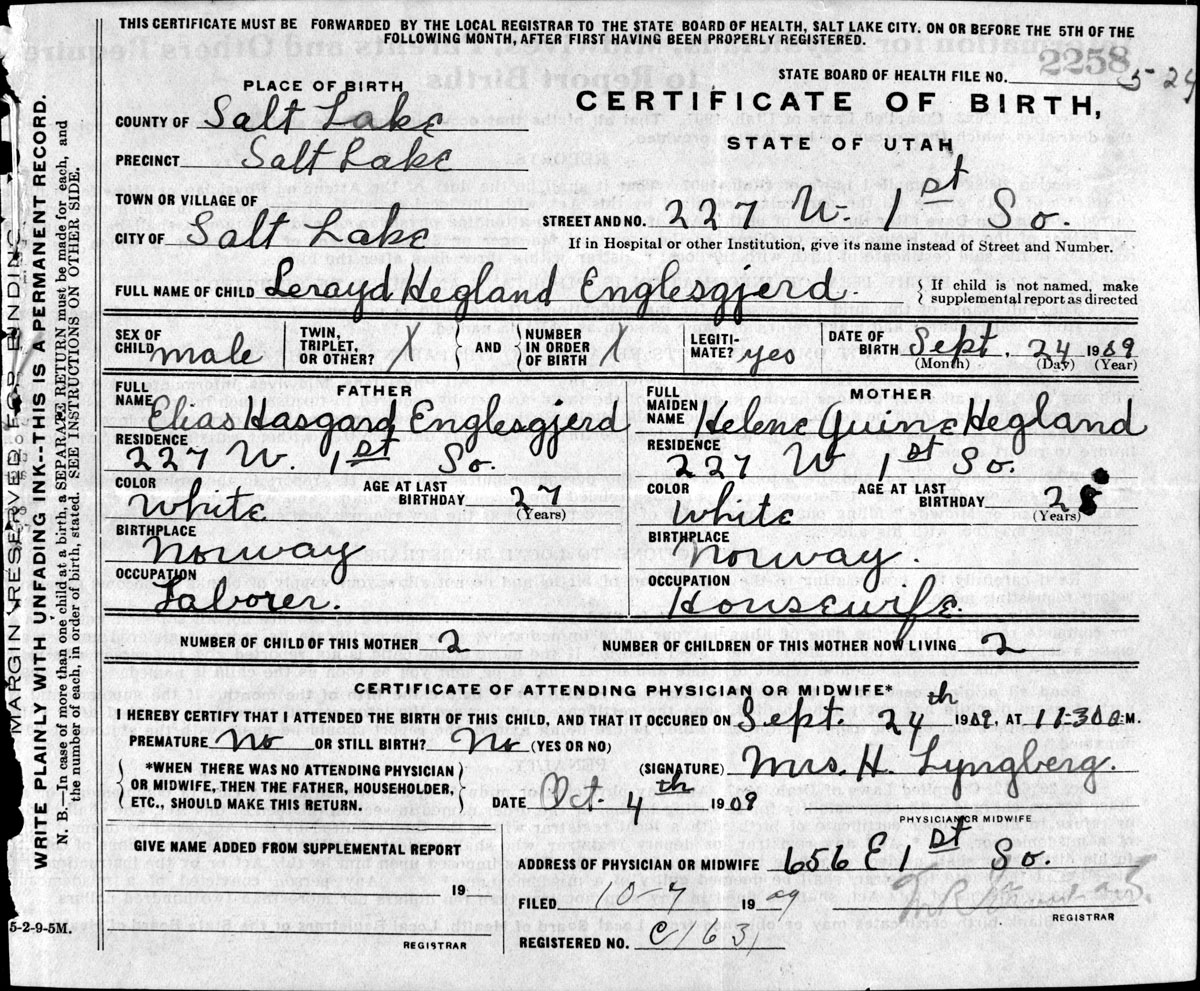 THIS CERTIFICATE MUST BE FORWARDED BY THE LOCAL REGISTRAR TO THE STATE BOARD OF HEALTH, SALT LAKE CITY. ON OR BEFORE THE 5TH OF THE
FOLLOWING MONTH, AFTER FIRST HAVING BEEN PROPERLY REGISTERED.
2258
STATE BOARD OF HEALTH FILE NO. 5-24
PLACE OF BIRTH
CERTIFICATE OF BIRTH,
STATE OF UTAH
COUNTY OF Salt Lake
PRECINCT Salt Lake
TOWN OR VILLAGE OF
STREET AND NO. 227 W. 1st So.
CITY OF Salt Lake
If in Hospital or other Institution, give its name instead of Street and Number.
FULL NAME OF CHILD Lerayd Hegland Englesgjerd.
{ If child is not named, make
supplemental report as directed
SEX OF CHILD male
TWIN, TRIPLET, OR OTHER? /
} AND {
NUMBER IN ORDER OF BIRTH /
LEGITI-MATE? yes
DATE OF BIRTH Sept. 24 1909
(Month) (Day) (Year)
FATHER
FULL NAME Elias Hasgard Englesgjerd
RESIDENCE
227 W. 1st So.
COLOR White
AGE AT LAST BIRTHDAY 27
(Years)
BIRTHPLACE
Norway
OCCUPATION
Laborer.
MOTHER
FULL MAIDEN NAME Helene Guine Hegland
RESIDENCE
227 W 1st So.
COLOR White
AGE AT LAST BIRTHDAY 28
(Years)
BIRTHPLACE
Norway.
OCCUPATION
Housewife.
NUMBER OF CHILD OF THIS MOTHER 2
NUMBER OF CHILDREN OF THIS MOTHER NOW LIVING 2
CERTIFICATE OF ATTENDING PHYSICIAN OR MIDWIFE*
I HEREBY CERTIFY THAT I ATTENDED THE BIRTH OF THIS CHILD, AND THAT IT OCCURED ON Sept. 24th 1909, AT 11:30 a M.
PREMATURE No OR STILL BIRTH? No (YES OR NO)
{ *WHEN THERE WAS NO ATTENDING PHYSICIAN
OR MIDWIFE, THEN THE FATHER, HOUSEHOLDER,
ETC., SHOULD MAKE THIS RETURN. }
(SIGNATURE) Mrs. H. Lyngberg.
DATE Oct. 4th 1909
PHYSICIAN OR MIDWIFE
GIVE NAME ADDED FROM SUPPLEMENTAL REPORT
19
REGISTRAR
ADDRESS OF PHYSICIAN OR MIDWIFE 656 E 1st So.
FILED 10-7 1909
REGISTRAR
REGISTERED NO. C1631
5-2-9-5M.
MARGIN RESERVED FOR BINDING
WRITE PLAINLY WITH UNFADING INK--THIS IS A PERMANENT RECORD.
N. B.—In case of more than one child at a birth, a SEPARATE RETURN must be made for each, and
the number of each, in order of birth, stated. SEE INSTRUCTIONS ON OTHER SIDE.